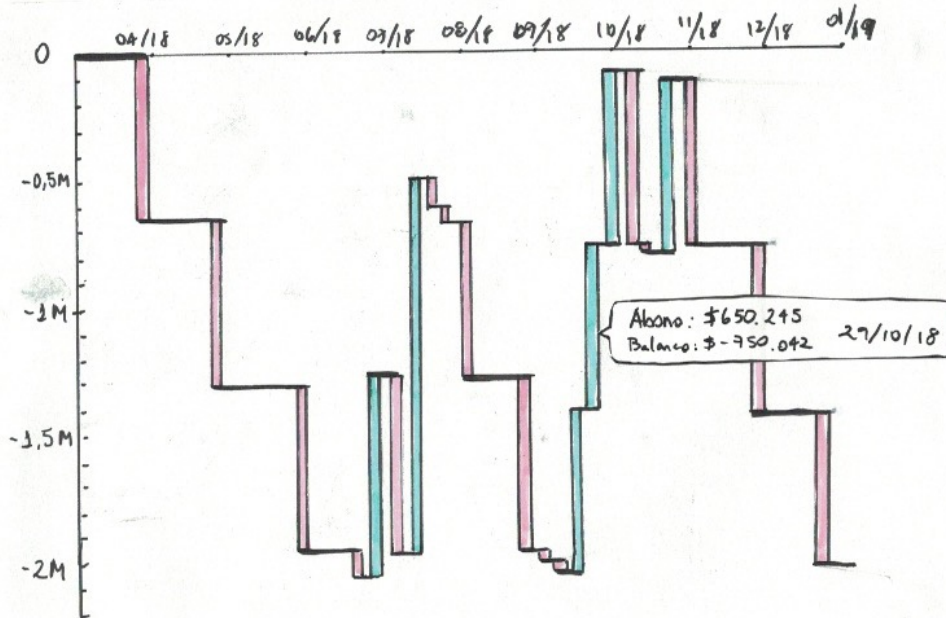 04/18 05/18 06/18 07/18 08/18 09/18 10/18 11/18 12/18 01/19
0
-0,5M
-1M
Abono: $650.245
Balance: $-750.042 29/10/18
-1,5M
-2M